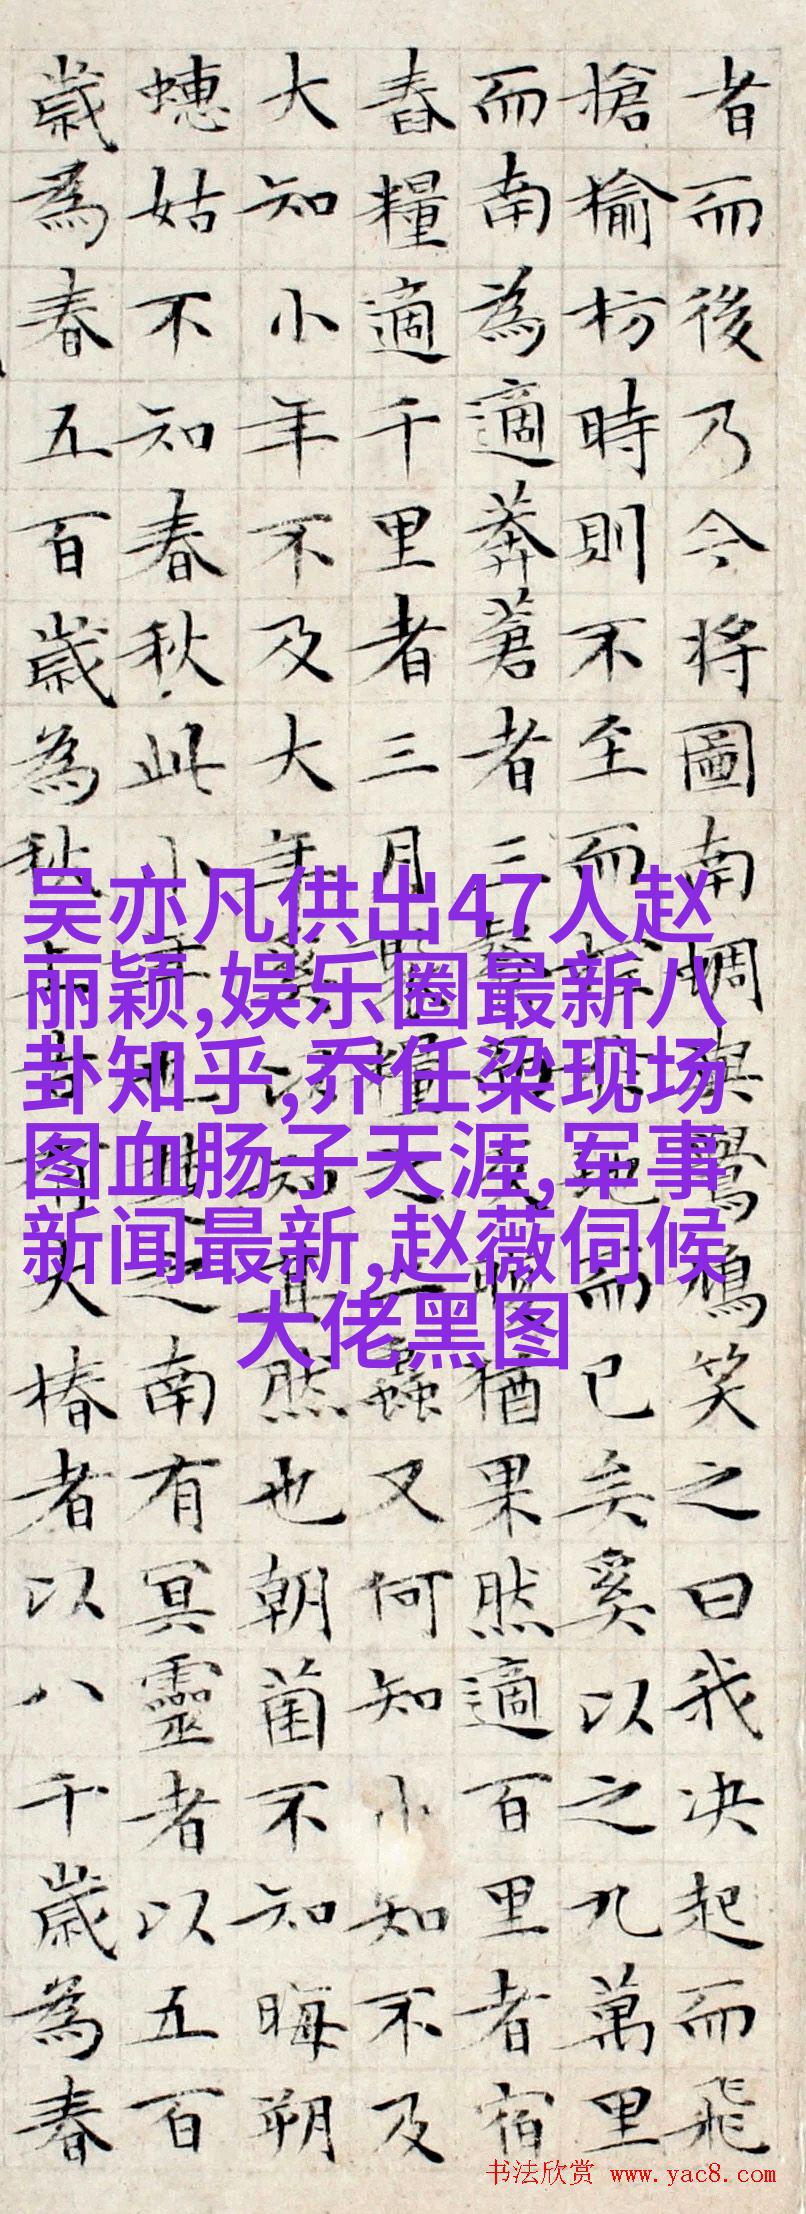 者而後乃今將圖南蜩與鷽鳩笑之曰我决起而飛
槍榆枋時則不至而控於地而已矣奚以之九萬里
而南為適莽蒼者三飡而反腹猶果然適百里者宿
舂糧適千里者三月聚糧之二蟲又何知小知不及
大知小年不及大年奚以知其然也朝菌不知晦朔
蟪姑不知春秋此小年也楚之南有冥靈者以五百
歲為春五百歲為秋上古有大椿者以八千歲為春
吴亦凡供出47人赵
丽颖,娱乐圈最新八
卦知乎,乔任梁现场
图血肠子天涯,军事
新闻最新,赵薇伺候
大佬黑图
书法欣赏 www.yac8.com